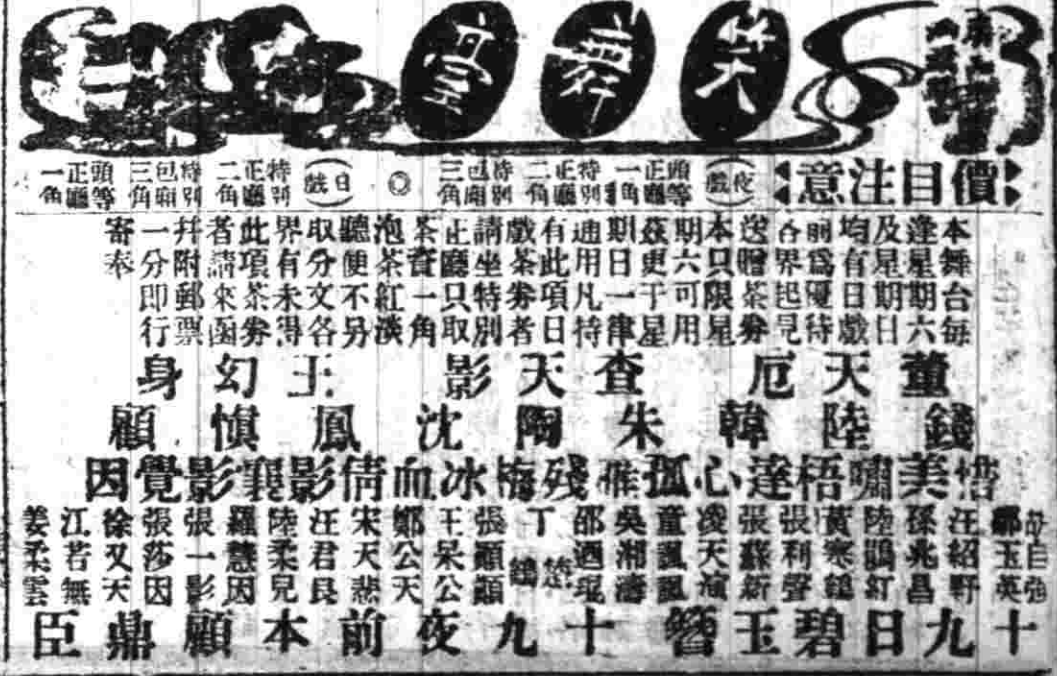 笑舞臺
價目注意
(夜戲)
頭等正廳一角
特別正廳二角
特別包廂三角
◎
(日戲)
特別正廳二角
特別包廂三角
頭等正廳一角
本舞台每
逢星期六
及星期日
均有日戲
前為優待
各界起見
送贈茶券
本只限星
期六可用
茲更于星
期日一律
通用凡持
有此項日
戲茶券者
請坐特別
正廳只取
茶資一角
泡茶紅淡
聽便不另
取分文各
界有未得
此項茶券
者請來函
幷附郵票
一分即行
寄奉
董天厄 查天影 王幻身
錢陸韓朱陶沈鳳慎顧
美嘯梧達心孤雁殘梅冰血倩影襄影覺因
玉英
汪紹野
孫兆昌
陸鵑紅
黃寒
張利聲
張蘇新
凌天演
童諷諷
吳湘濤
邵迺琨
丁楚鶴
張顚顚
王呆公
鄭公天
宋天悲
汪君良
陸柔兒
羅慧因
張一影
張莎因
徐又天
江若無
姜柔雲
十九日碧玉簪 十九夜前本顧鼎臣